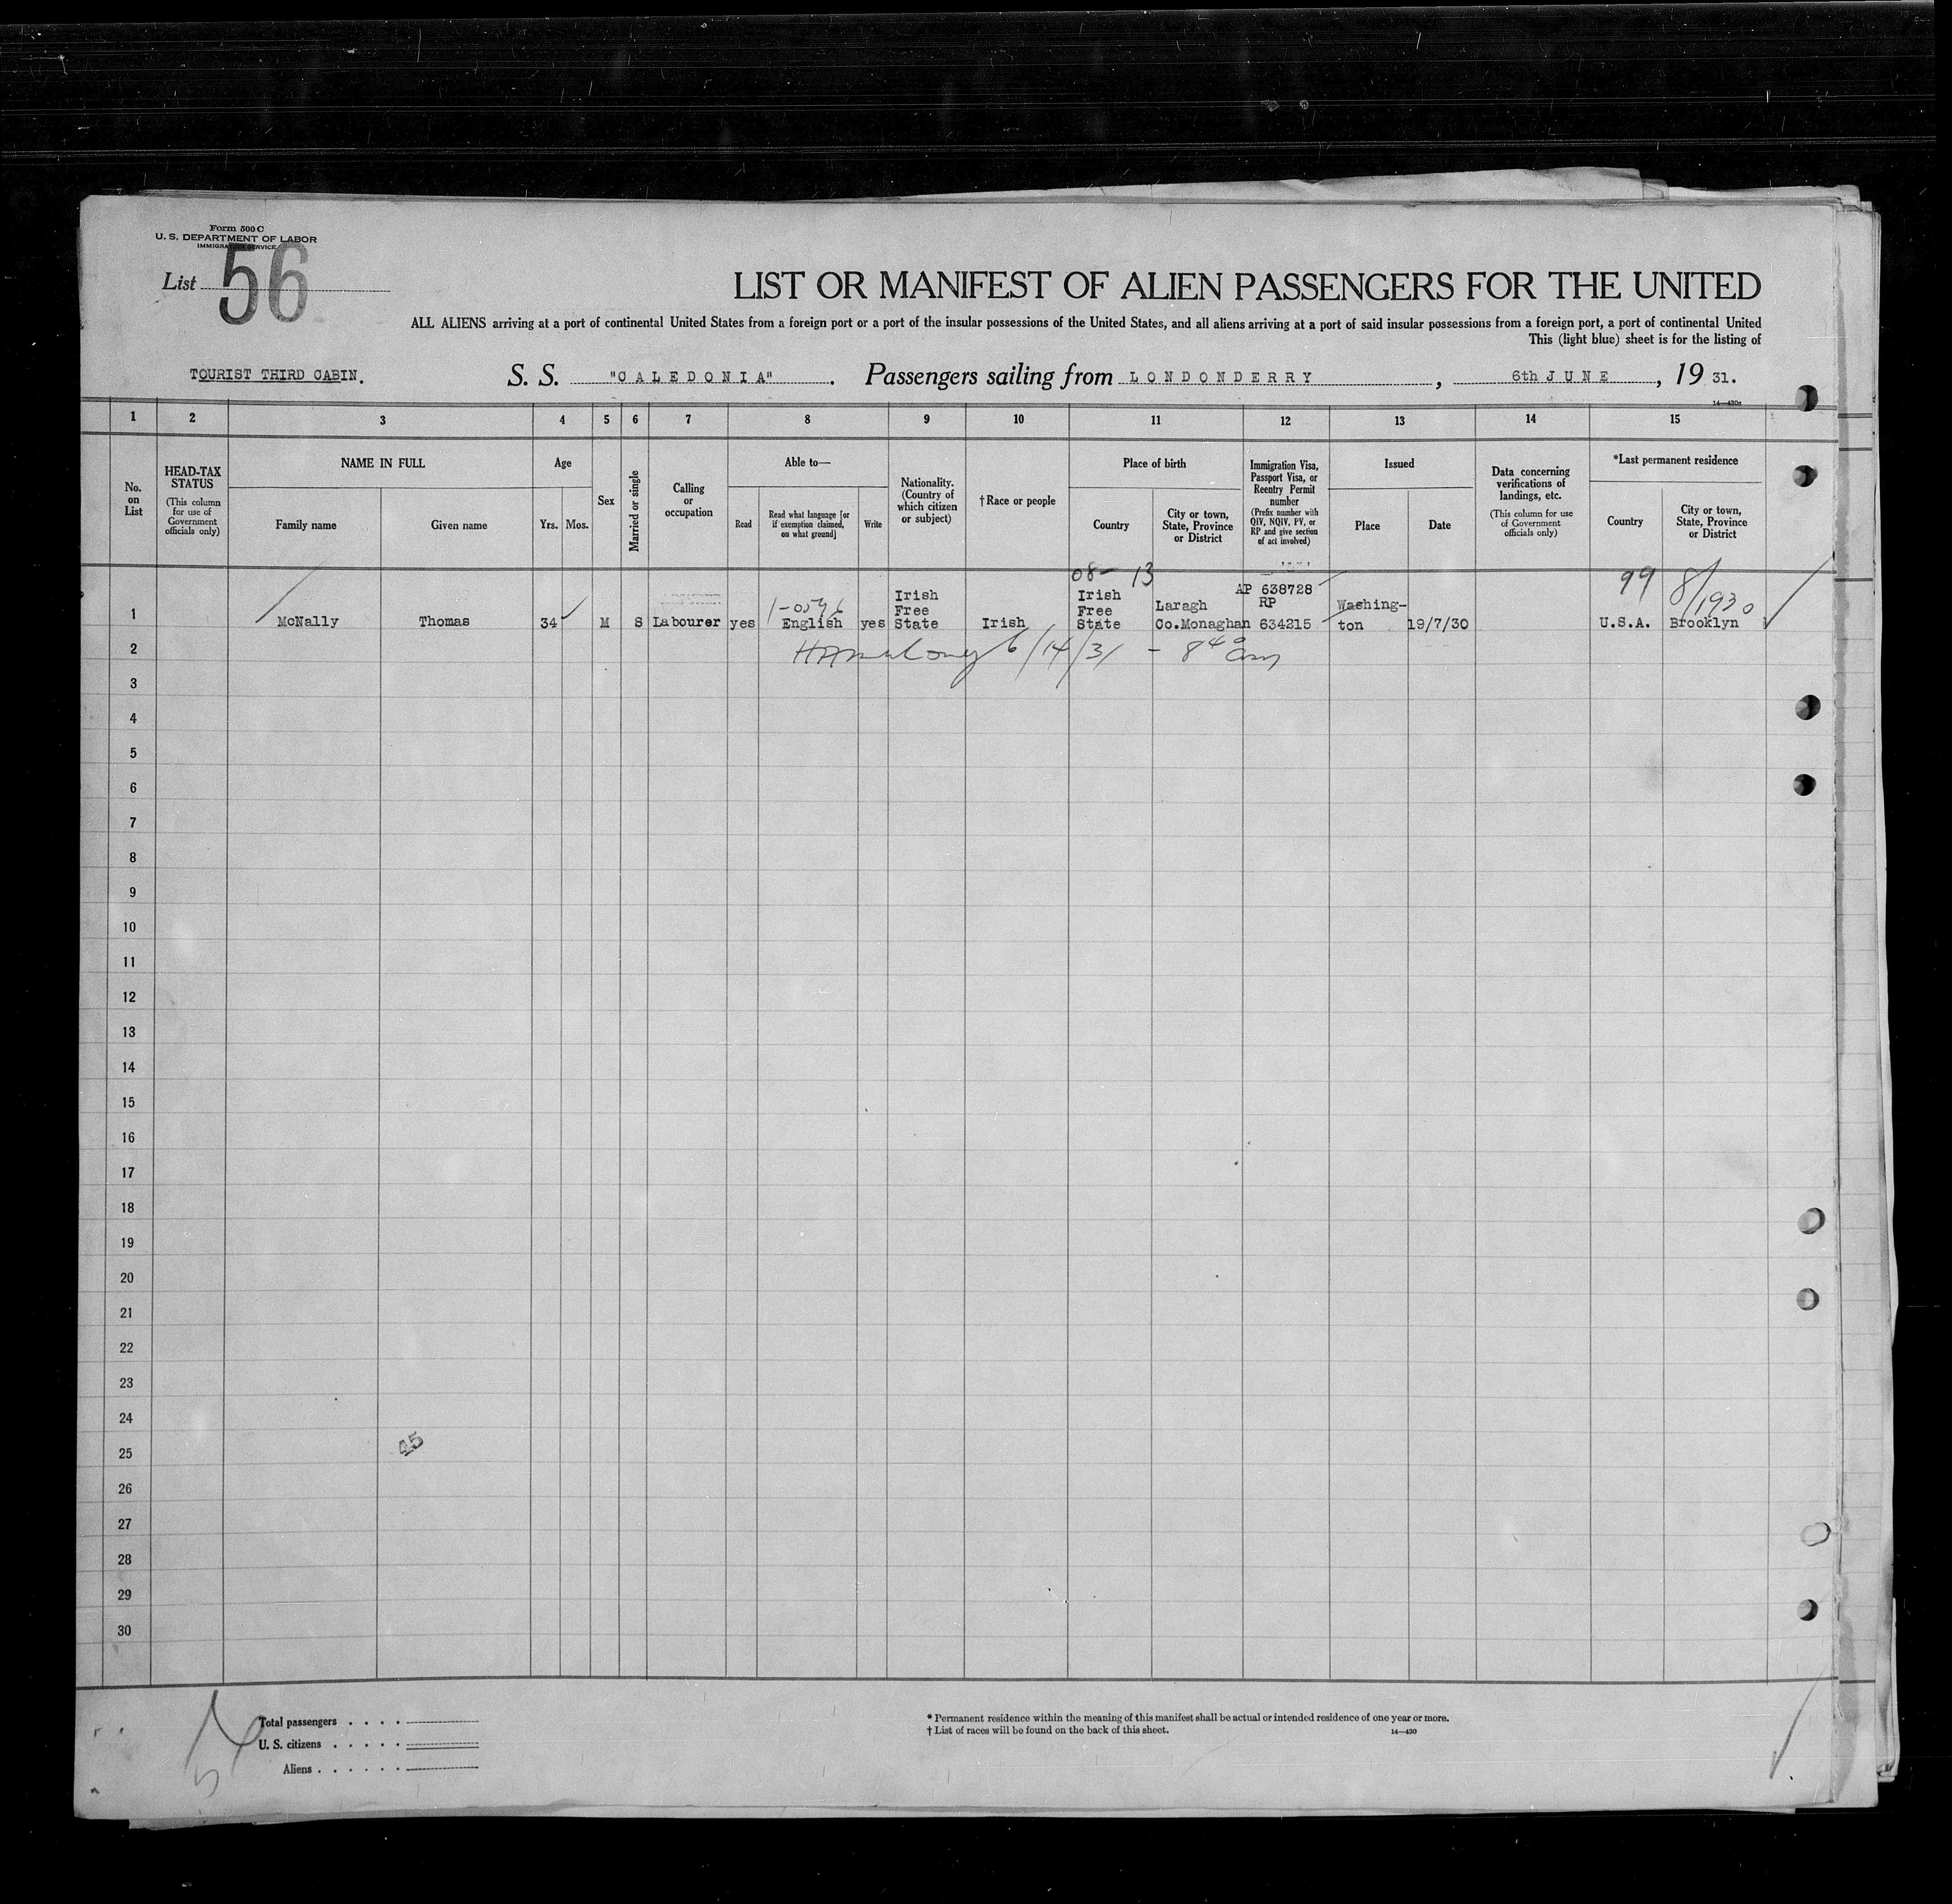 Form 500 C
U. S. DEPARTMENT OF LABOR
IMMIGRATION SERVICE
List 56
LIST OR MANIFEST OF ALIEN PASSENGERS FOR THE UNITED
ALL ALIENS arriving at a port of continental United States from a foreign port or a port of the insular possessions of the United States, and all aliens arriving at a port of said insular possessions from a foreign port, a port of continental United
This (light blue) sheet is for the listing of
TOURIST THIRD CABIN. S. S. "CALEDONIA". Passengers sailing from LONDONDERRY, 6th JUNE, 19 31.
14—430a
1 2 3 4 5 6 7 8 9 10 11 12 13 14 15
No. on List
HEAD-TAX STATUS
(This column for use of Government officials only)
NAME IN FULL
Family name
Given name
Age
Yrs. Mos.
Sex
Married or single
Calling or occupation
Able to—
Read
Read what language [or if exemption claimed, on what ground]
Write
Nationality. (Country of which citizen or subject)
†Race or people
Place of birth
Country
City or town, State, Province or District
Immigration Visa, Passport Visa, or Reentry Permit number
(Prefix number with QIV, NQIV, PV, or RP and give section of act involved)
Issued
Place
Date
Data concerning verifications of landings, etc.
(This column for use of Government officials only)
*Last permanent residence
Country
City or town, State, Province or District
08- 13
99 8/1930
1 McNally Thomas 34 M S Labourer yes 1-0596 English yes Irish Free State Irish Irish Free State Laragh Co.Monaghan AP 638728 RP 634215 Washington 19/7/30 U.S.A. Brooklyn
2 6/14/31 - 8 40 am
3
4
5
6
7
8
9
10
11
12
13
14
15
16
17
18
19
20
21
22
23
24
25
26
27
28
29
30
Total passengers
U. S. citizens
Aliens
* Permanent residence within the meaning of this manifest shall be actual or intended residence of one year or more.
† List of races will be found on the back of this sheet.
14—430